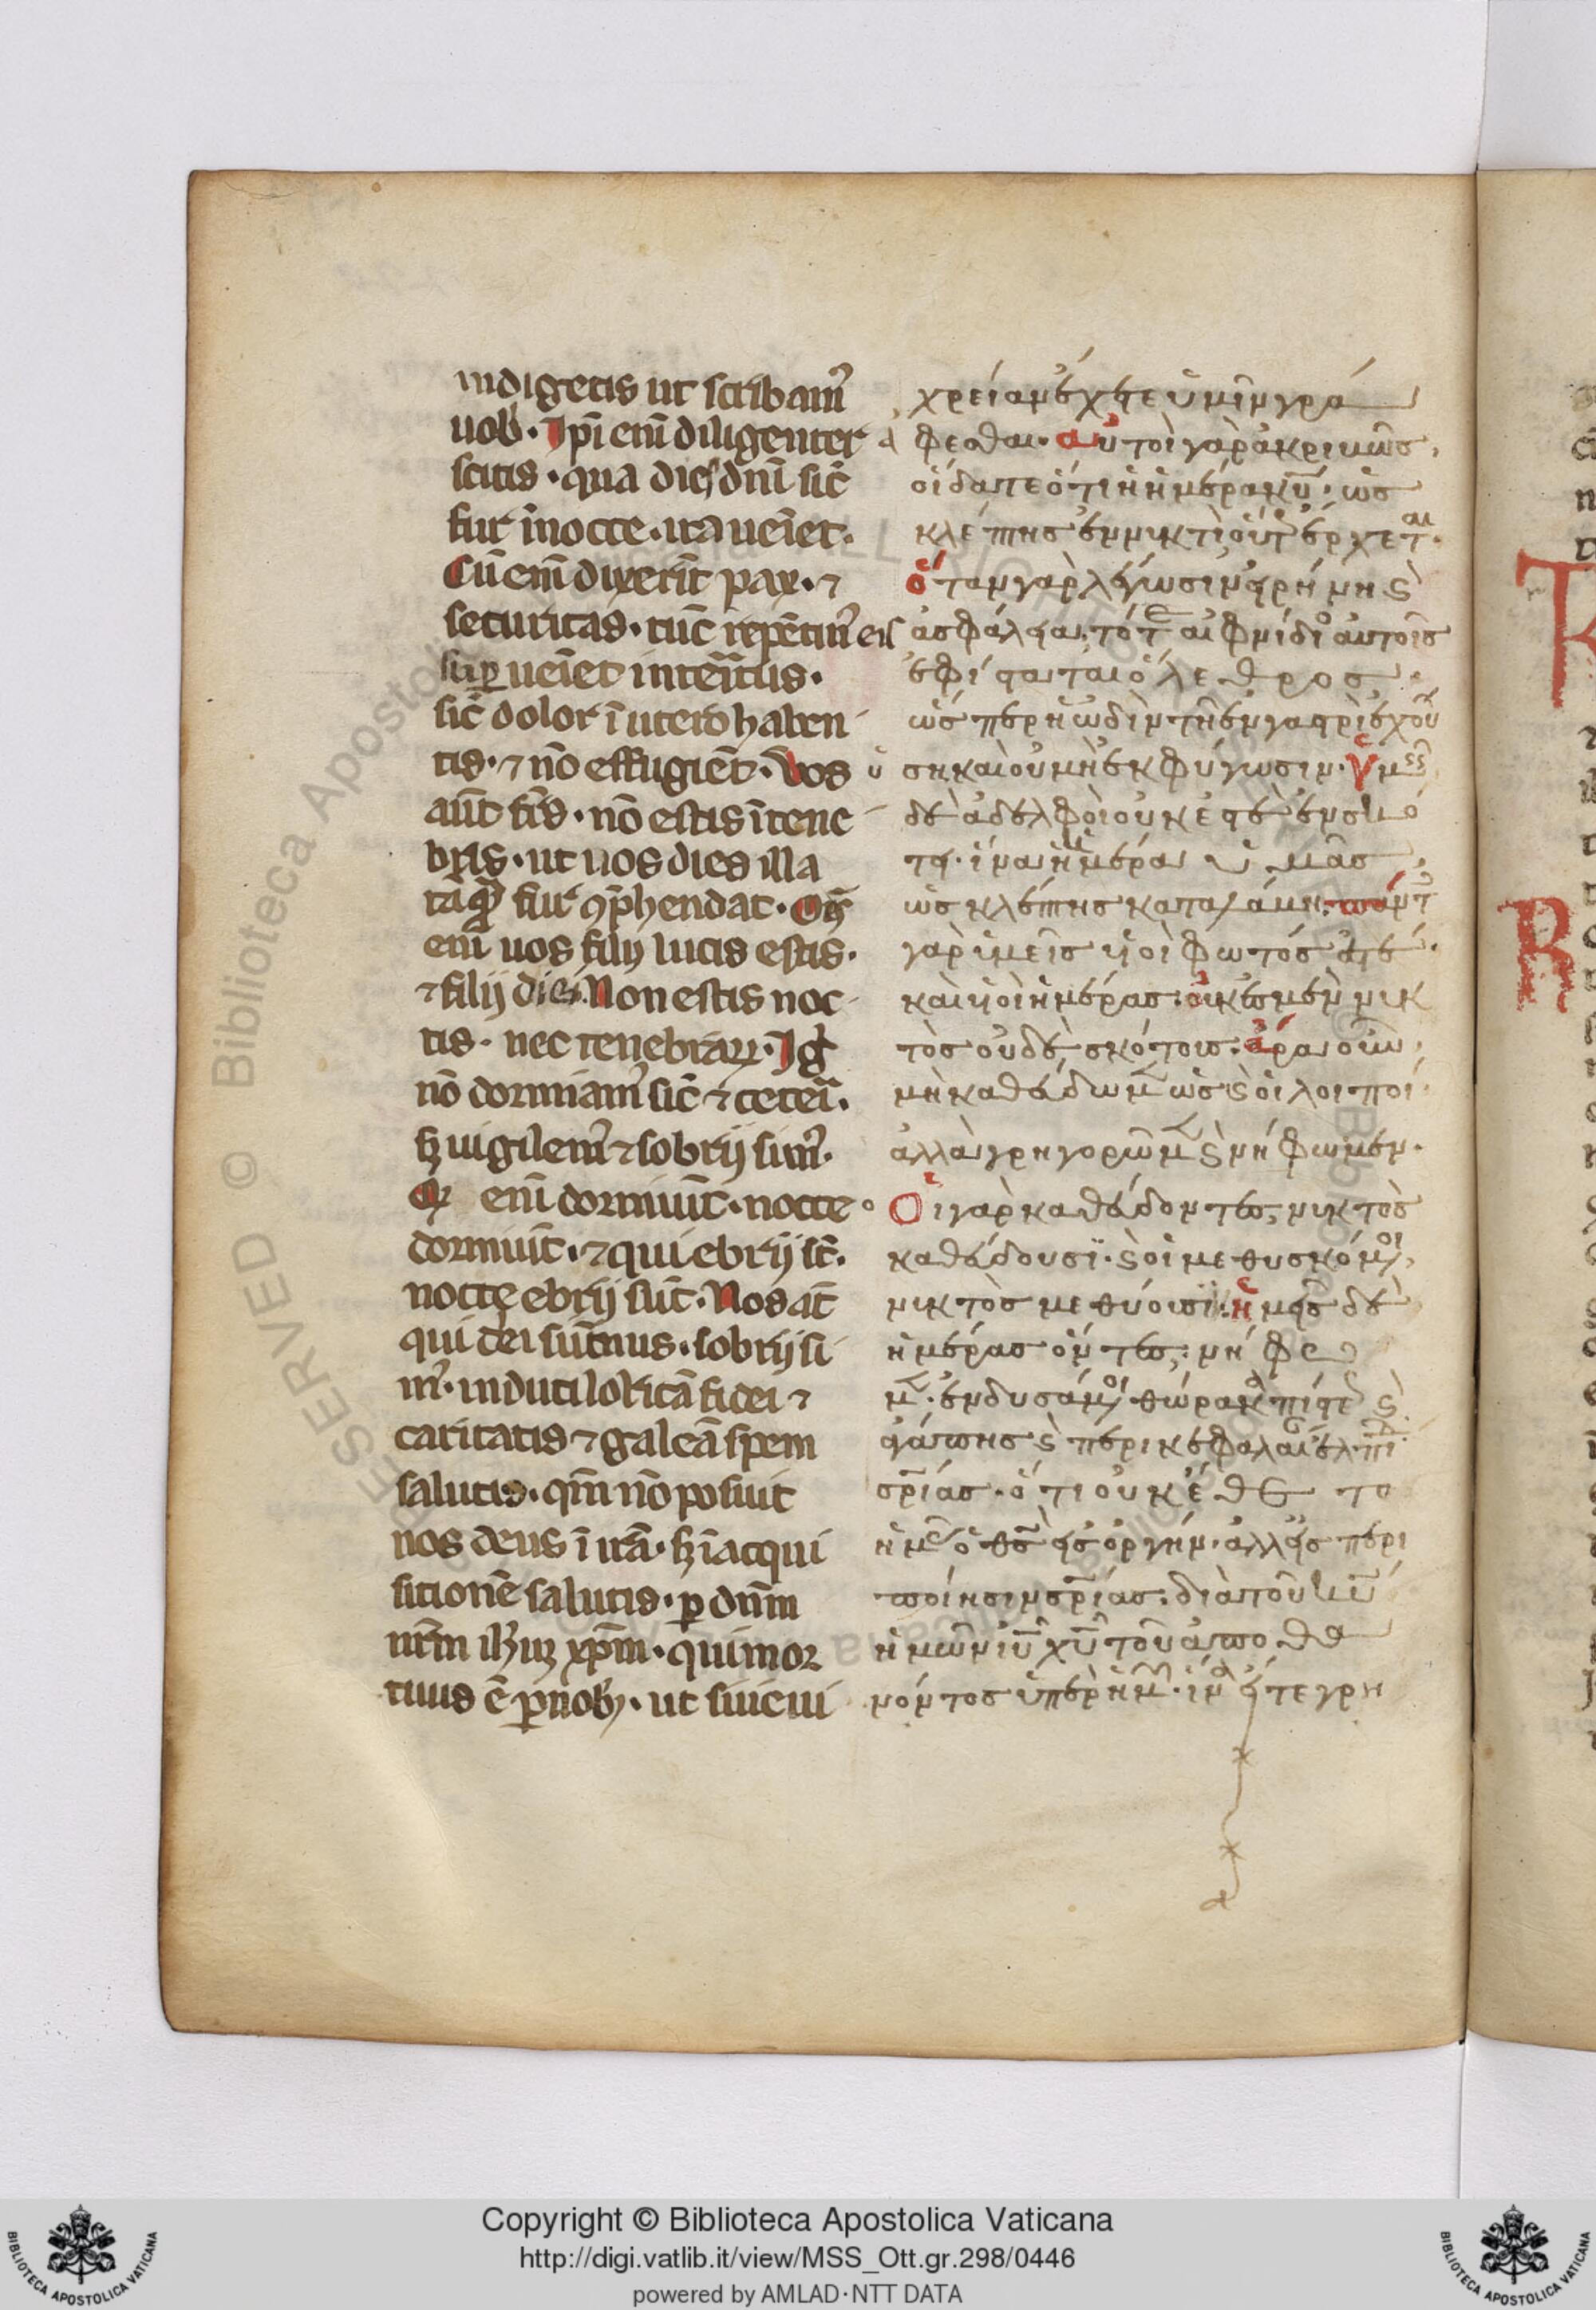 indigetis ut scribam᷒
uob̾. Ip̄i eni᷒ diligenter
scitis. qua dies dn̄i sic̄
fur i̅nocte. ita uei̅et.
Cū eni᷒ dixerīt pax. ⁊
securitas. tūc repētin᷒ eis
sup̱ uēiet interit᷒us.
sic̄ dolor ī utero haben
tis. ⁊ nō effugiēt. Vos
aūt fr̄s. nō estis ītene
bris. ut uos dies illa
tāq̄ᷓ fur ꝯp̄hendat. Oēs
eni᷒ uos filij lucis estis.
⁊ filij diei. Non estis noc
tis. nec tenebraꝝ. Igͥ
nō dormiam᷒ sic̄ ⁊ ceteri᷒.
sꝫ uigilem᷒ ⁊ sobrij sim᷒.
Qͥ eni᷒ dormiūt. nocte
dormiūt. ⁊ qui ebrij sūt.
nocte ebrij sūt. Nos aūt
qui diei sumus. sobrij si
m᷒. induti loricā fidei ⁊
caritatis ⁊ galeā spem
salutis. qm̄ nō posuit
nos deus ī irā. sꝫ ī acqui
sitionē salutis. ꝑ dnm̄
nr̄m ih̄m xp̄m. qui mor
tuus ē p̄ nobꝫ. ut siue ui
χρείαν ἔχετε ὑμῖν γρά
φεσθαι. αὐτοὶ γὰρ ἀκριβῶς
οἴδατε ὅτι ἡ ἡμέρα κῡ. ὡς
κλέπτης ἐν νυκτὶ οὕτ ἔρχεται.
ὅταν γὰρ λέγωσιν εἰρήνη ϗ
ἀσφάλεια. τότε αἰφνίδιος αὐτοῖς
ἐφίσταται ὄλεθρος
ὥσπερ ἡ ὠδὶν τῇ ἐν γαστρὶ ἐχού
σῃ καὶ οὐ μὴ ἐκφύγωσιν. ὑμεῖς
δὲ ἀδελφοὶ οὐκ ἐστὲ ἐν σκό
τει. ἵνα ἡ ἡμέρα ὑμᾶς
ὡς κλέπτης καταλάβῃ. πάντες
γὰρ ὑμεῖς υἱοὶ φωτός ἐστε.
καὶ υἱοὶ ἡμέρας. οὐκ ἐσμὲν νυκ
τὸς οὐδὲ σκότους. ἄρα οὖν
μὴ καθεύδωμεν ὡς ϗ οἱ λοιποί
ἀλλὰ γρηγορῶμεν ϗ νήφωμεν.
οἱ γὰρ καθεύδοντες, νυκτὸς
καθεύδουσι. ϗ οἱ μεθυσκόμενοι
νυκτὸς μεθύουσι. ἡμεῖς δὲ
ἡμέρας ὄντες. νήφω
μεν. ἐνδυσάμενοι θώρακα πίστεως ϗ
ἀγάπης ϗ περικεφαλαίαν ἐλπίδα
σρ̄ίας. ὅτι οὐκ ἔθετο
ἡμᾶς ὁ θς̄ εἰς ὀργήν. ἀλλ᾽ εἰς περι
ποίησιν σρ̄ίας. διὰ τοῦ κῡ
ἡμῶν ιῡ χῡ τοῦ ἀποθα
νόντος ὑπὲρ ἡμῶν. ἵνα εἴτε γρη
Copyright © Biblioteca Apostolica Vaticana
http://digi.vatlib.it/view/MSS_Ott.gr.298/0446
powered by AMLAD·NTT DATA